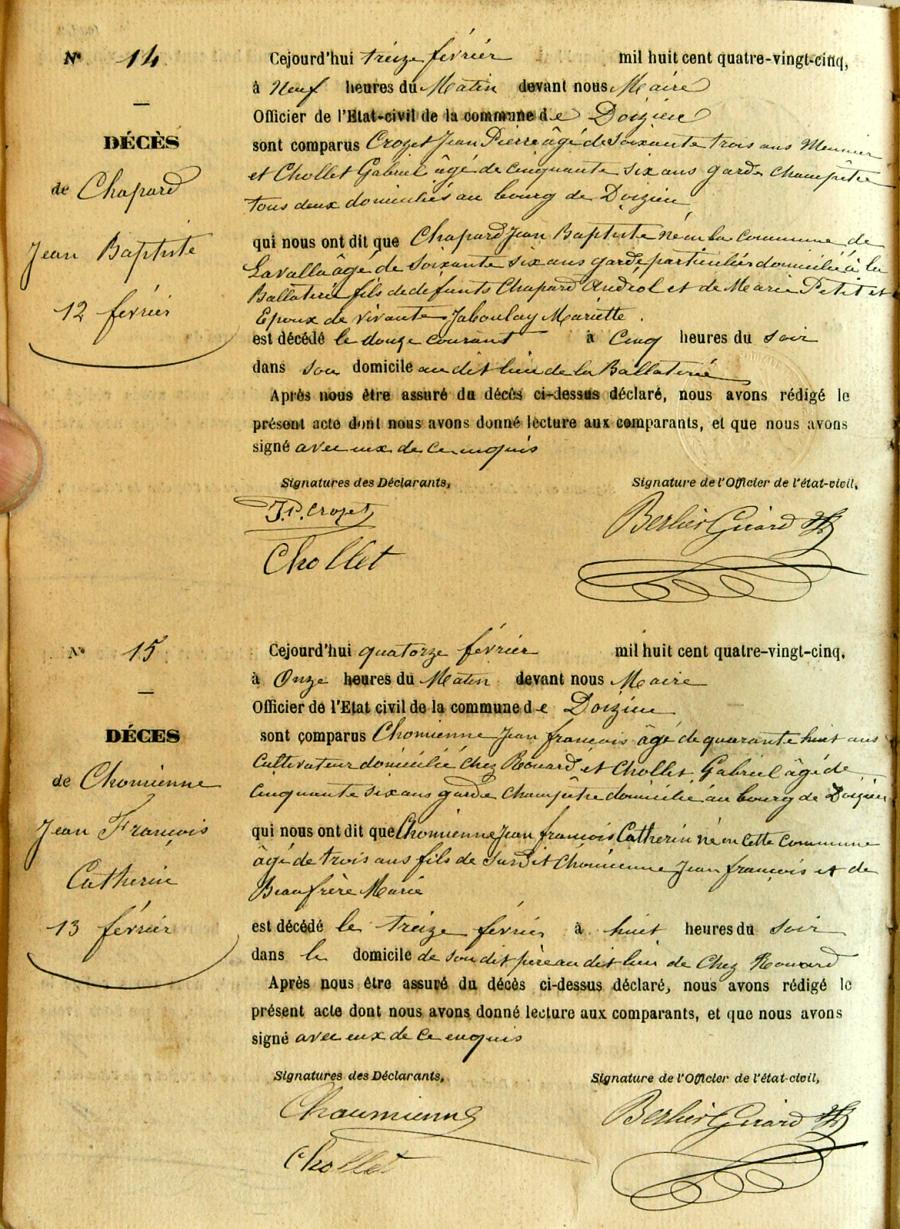 N° 14
DÉCÈS
de Chapard
Jean Baptiste
12 février
Cejourd'hui treize février mil huit cent quatre-vingt-cinq,
à Neuf heures du Matin devant nous Maire
Officier de l'Etat-civil de la commune de Doizieu
sont comparus Crozet Jean Pierre âgé de Soixante trois ans Meunier
et Chollet Gabriel âgé de cinquante six ans garde champêtre
tous deux domiciliés au bourg de Doizieu
qui nous ont dit que Chapard Jean Baptiste né en la commune de
Lavalla âgé de soixante six ans garde particulier domicilié à la
Ballaterie fils de defunts Chapard Andéol et de Marie Petit et
Epoux de vivante Jaboulay Mariette.
est décédé le douze courant à Cinq heures du soir
dans son domicile au dit lieu de la Ballaterie
Après nous être assuré du décès ci-dessus déclaré, nous avons rédigé le
présent acte dont nous avons donné lecture aux comparants, et que nous avons
signé avec eux de ce enquis
Signatures des Déclarants, Signature de l'Officier de l'état-civil,
J.P. Crozet Berlier Girard
Chollet
N° 15
DÉCES
de Chomienne
Jean François
Catherin
13 février
Cejourd'hui quatorze février mil huit cent quatre-vingt-cinq,
à Onze heures du Matin devant nous Maire
Officier de l'Etat civil de la commune de Doizieu
sont comparus Chomienne Jean françois âgé de quarante huit ans
Cultivateur domicilié chez Rouard et Chollet Gabriel âgé de
cinquante six ans garde champêtre domicilié au bourg de Doizieu
qui nous ont dit que Chomienne Jean françois Catherin né en cette commune
âgé de trois ans fils de Susdit Chomienne Jean françois et de
Beaufrère Marie
est décédé le treize février à huit heures du soir
dans le domicile de son dit père au dit lieu de Chez Rouard
Après nous être assuré du décès ci-dessus déclaré, nous avons rédigé le
présent acte dont nous avons donné lecture aux comparants, et que nous avons
signé avec eux de ce enquis
Signatures des Déclarants, Signature de l'Officier de l'état-civil,
Chaumienne Berlier Girard
Chollet